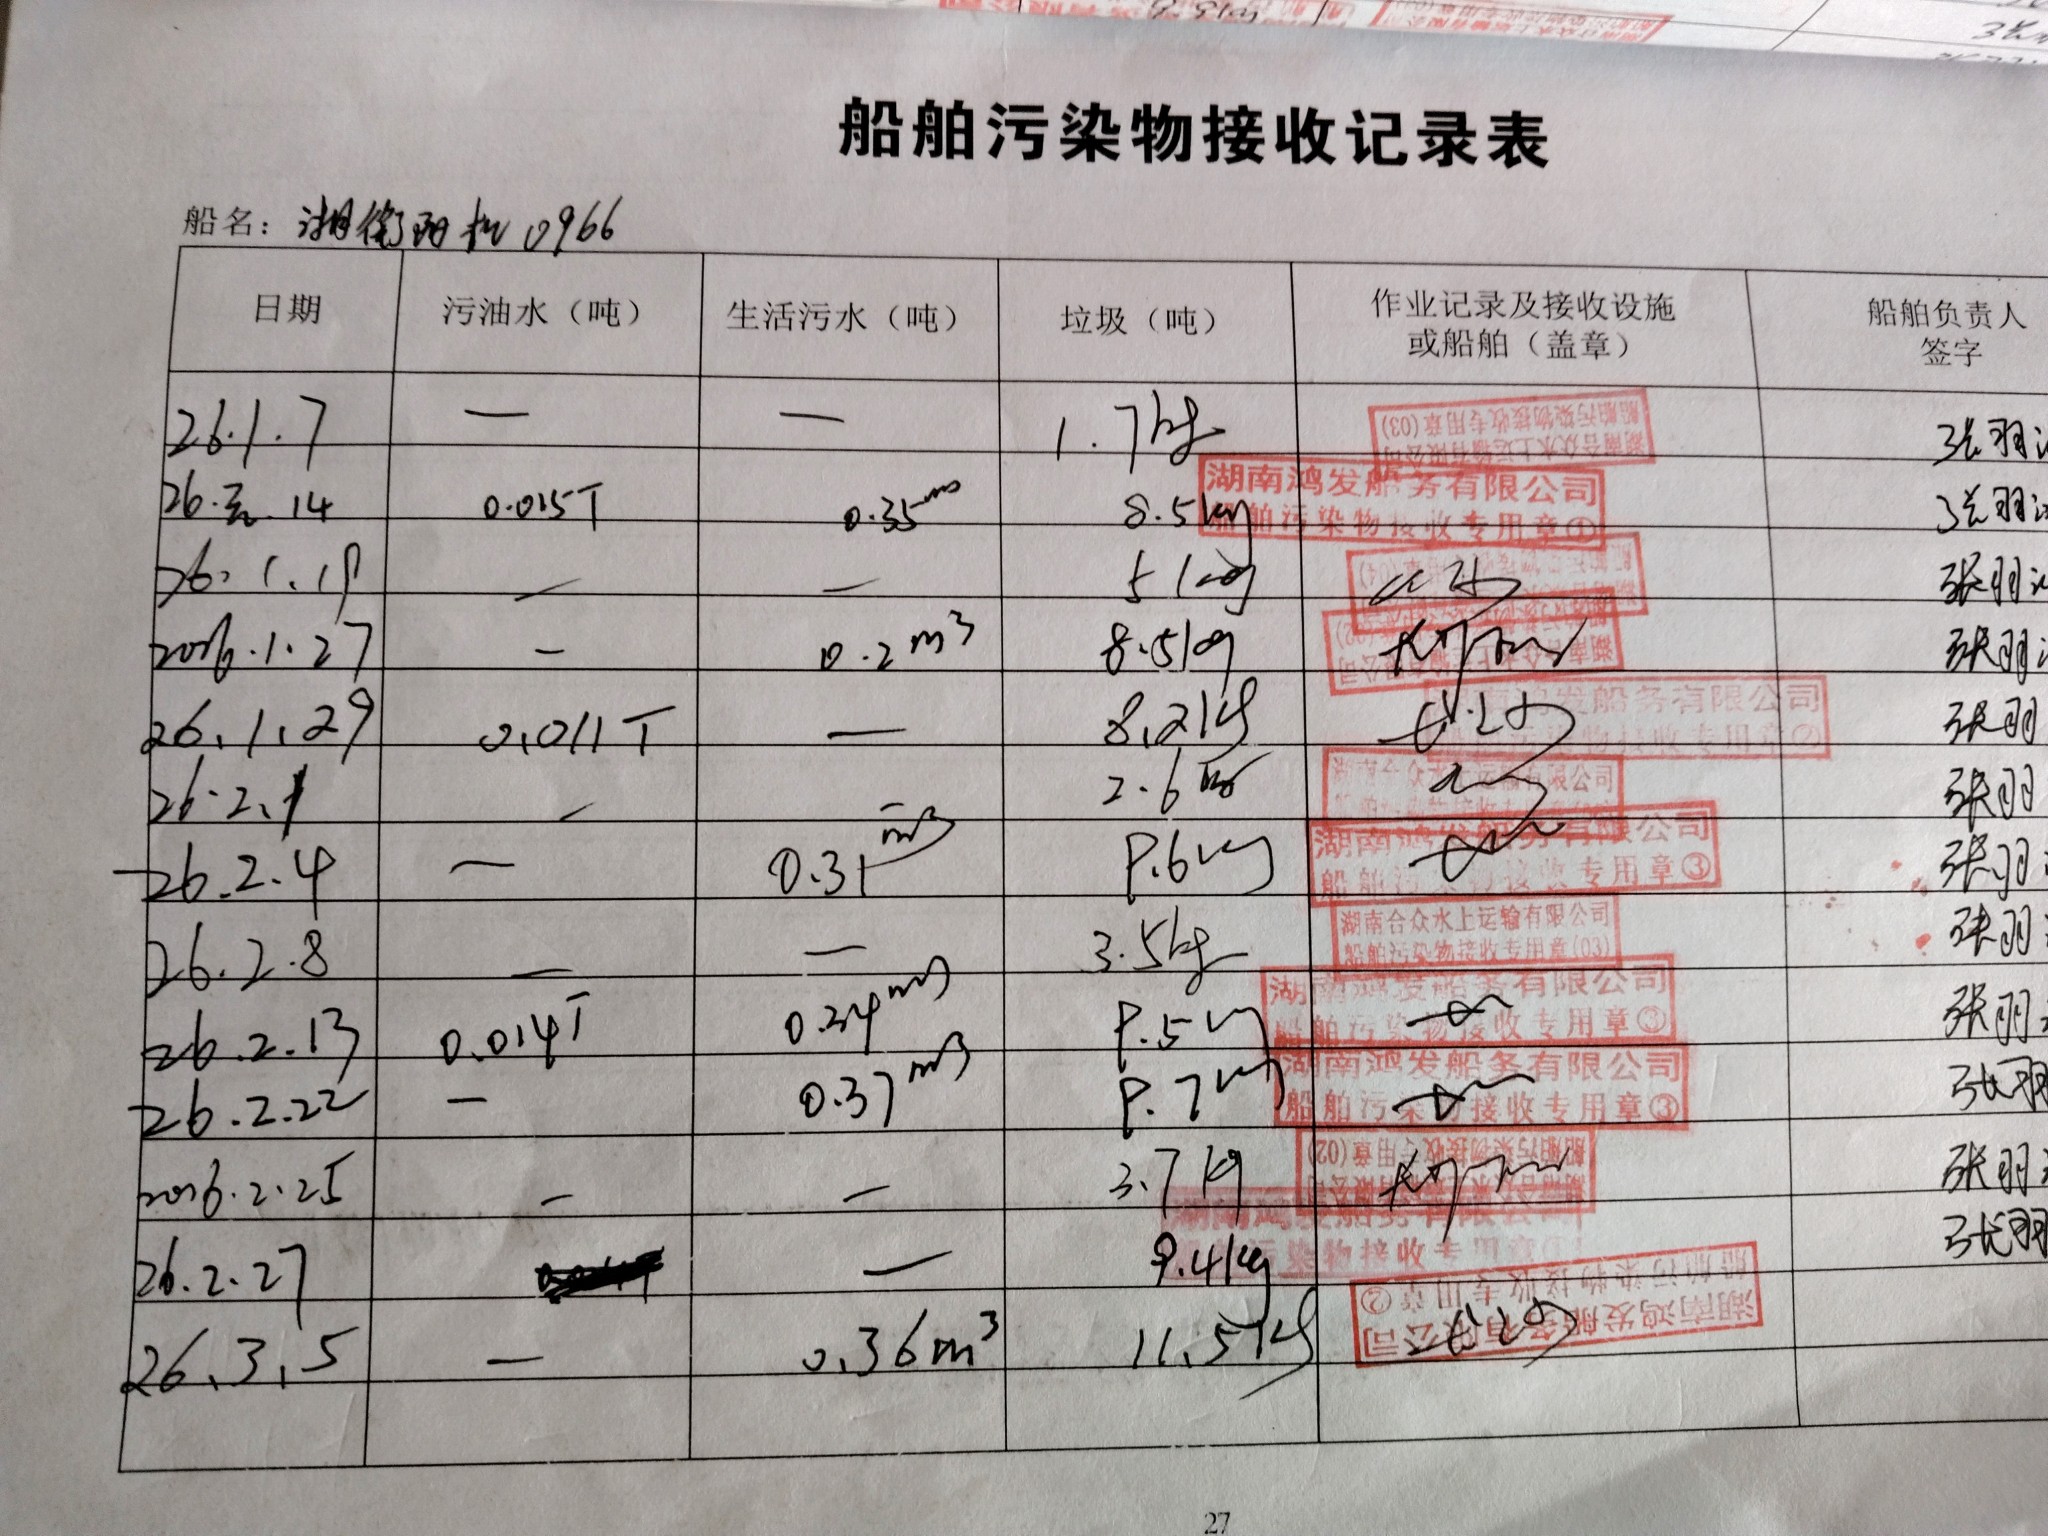 船舶污染物接收记录表
船名：湖衡阳机0966
日期 污油水（吨） 生活污水（吨） 垃圾（吨） 作业记录及接收设施或船舶（盖章） 船舶负责人签字
26.1.7 — — 1.7kg 湖南合众水上运输有限公司 船舶污染物接收专用章(03) 张羽
26. 14 0.015T 0.35m 8.5kg 湖南鸿发船务有限公司 船舶污染物接收专用章① 张羽
26.1.19 — — 51kg 张羽
2026.1.27 — 0.2m³ 8.5kg 张羽
26.1.29 0.011T — 8.2kg 湖南鸿发船务有限公司 船舶污染物接收专用章② 张羽
26.2.1 — — 2.6kg 湖南合众水上运输有限公司 张羽
26.2.4 — 0.31m³ 9.6kg 湖南鸿发船务有限公司 船舶污染物接收专用章③ 张羽
26.2.8 — — 3.5kg 湖南合众水上运输有限公司 船舶污染物接收专用章(03) 张羽
26.2.13 0.014T 0.34m³ 9.5kg 湖南鸿发船务有限公司 船舶污染物接收专用章③ 张羽
26.2.22 — 0.37m³ 9.7kg 湖南鸿发船务有限公司 船舶污染物接收专用章③ 张羽
2026.2.25 — — 3.7kg 船舶污染物接收专用章(02) 张羽
26.2.27 — 9.4kg 湖南鸿发船务有限公司 船舶污染物接收专用章 张羽
26.3.5 — 0.36m³ 11.5kg 湖南鸿发船务有限公司 船舶污染物接收专用章②
27